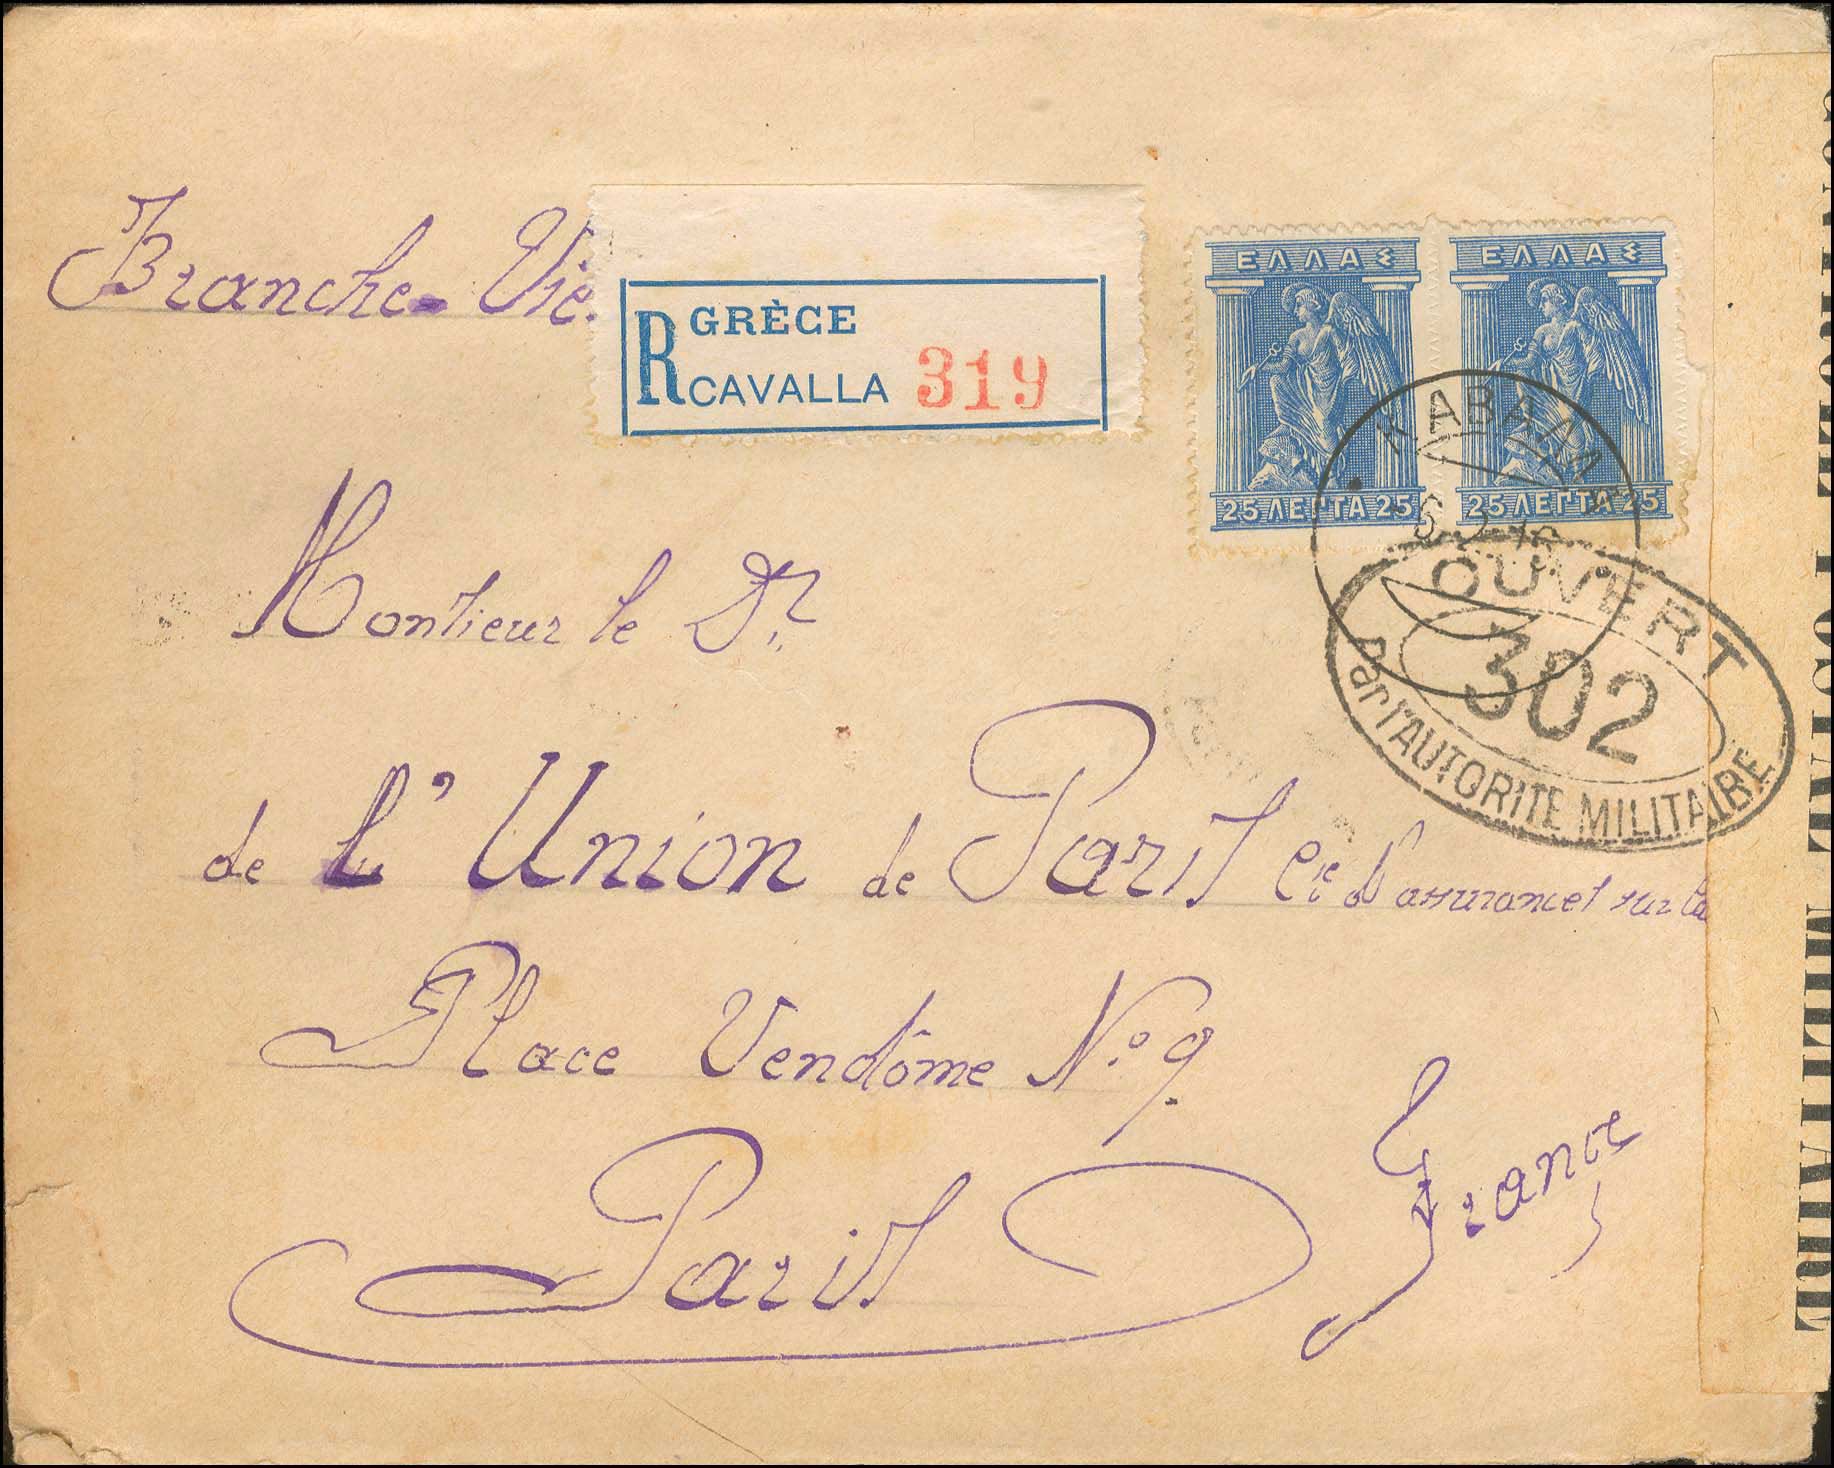 Branche-Vie.
GRÈCE
R CAVALLA 319
ΕΛΛΑΣ
25 ΛΕΠΤΑ 25
ΕΛΛΑΣ
25 ΛΕΠΤΑ 25
ΚΑΒΑΛΛΑ
OUVERT
302
Par l'AUTORITE MILITAIRE
CONTROLE POSTAL MILITAIRE
Monsieur le Dr.
de l'Union de Paris Cie d'assurances sur la
Place Vendôme No. 9.
Paris
France